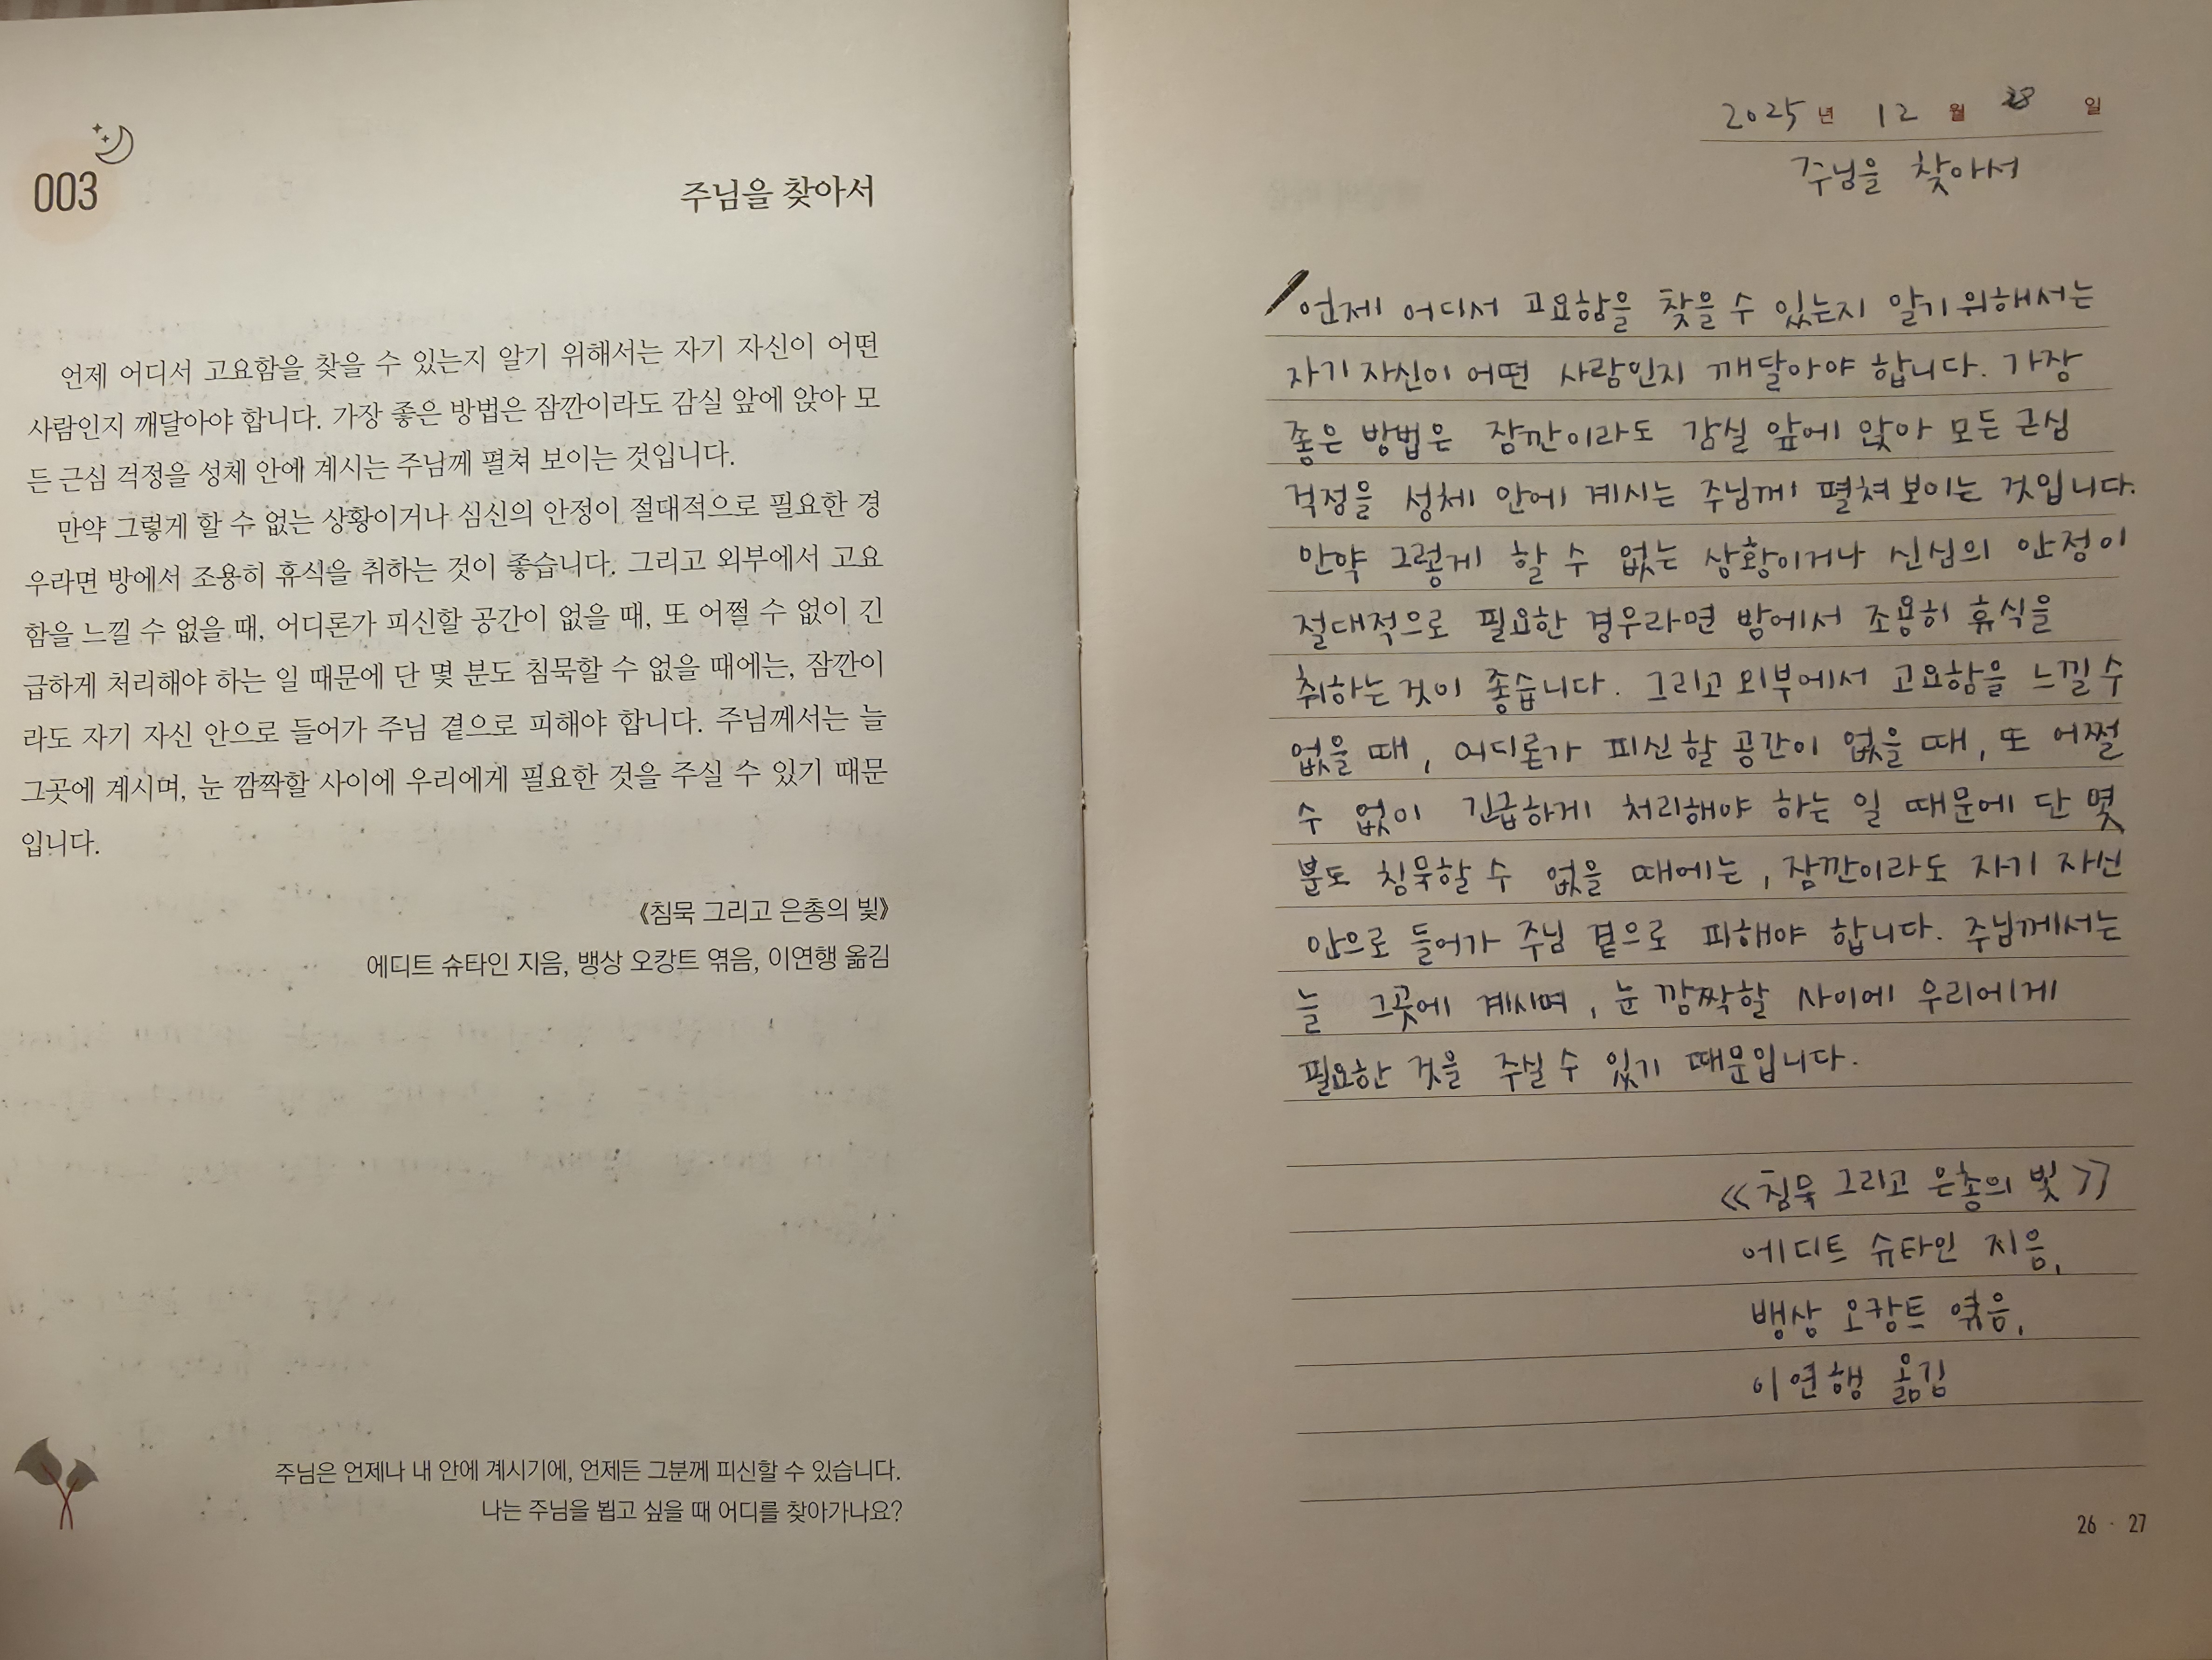 003
주님을 찾아서
언제 어디서 고요함을 찾을 수 있는지 알기 위해서는 자기 자신이 어떤
사람인지 깨달아야 합니다. 가장 좋은 방법은 잠깐이라도 감실 앞에 앉아 모
든 근심 걱정을 성체 안에 계시는 주님께 펼쳐 보이는 것입니다.
만약 그렇게 할 수 없는 상황이거나 심신의 안정이 절대적으로 필요한 경
우라면 방에서 조용히 휴식을 취하는 것이 좋습니다. 그리고 외부에서 고요
함을 느낄 수 없을 때, 어디론가 피신할 공간이 없을 때, 또 어쩔 수 없이 긴
급하게 처리해야 하는 일 때문에 단 몇 분도 침묵할 수 없을 때에는, 잠깐이
라도 자기 자신 안으로 들어가 주님 곁으로 피해야 합니다. 주님께서는 늘
그곳에 계시며, 눈 깜짝할 사이에 우리에게 필요한 것을 주실 수 있기 때문
입니다.
《침묵 그리고 은총의 빛》
에디트 슈타인 지음, 뱅상 오캉트 엮음, 이연행 옮김
주님은 언제나 내 안에 계시기에, 언제든 그분께 피신할 수 있습니다.
나는 주님을 뵙고 싶을 때 어디를 찾아가나요?
2025년 12월 28일
주님을 찾아서
언제 어디서 고요함을 찾을 수 있는지 알기 위해서는
자기 자신이 어떤 사람인지 깨달아야 합니다. 가장
좋은 방법은 잠깐이라도 감실 앞에 앉아 모든 근심
걱정을 성체 안에 계시는 주님께 펼쳐 보이는 것입니다.
만약 그렇게 할 수 없는 상황이거나 신심의 안정이
절대적으로 필요한 경우라면 방에서 조용히 휴식을
취하는 것이 좋습니다. 그리고 외부에서 고요함을 느낄 수
없을 때, 어디론가 피신할 공간이 없을 때, 또 어쩔
수 없이 긴급하게 처리해야 하는 일 때문에 단 몇
분도 침묵할 수 없을 때에는, 잠깐이라도 자기 자신
안으로 들어가 주님 곁으로 피해야 합니다. 주님께서는
늘 그곳에 계시며, 눈 깜짝할 사이에 우리에게
필요한 것을 주실 수 있기 때문입니다.
《침묵 그리고 은총의 빛》
에디트 슈타인 지음,
뱅상 오캉트 엮음,
이연행 옮김
26 · 27